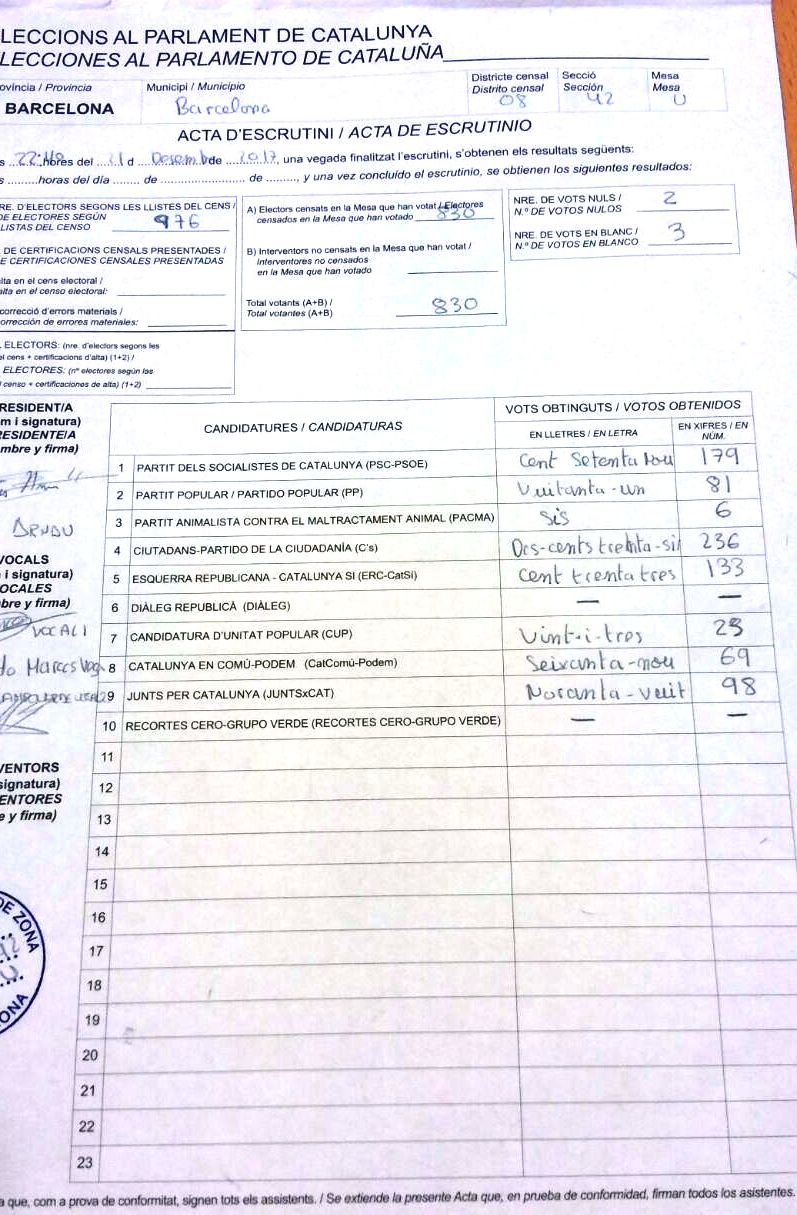 LECCIONS AL PARLAMENT DE CATALUNYA
LECCIONES AL PARLAMENTO DE CATALUÑA
ovíncia / Provincia
BARCELONA
Municipi / Municipio
Barcelona
Districte censal
Distrito censal
08
Secció
Sección
42
Mesa
Mesa
U
ACTA D'ESCRUTINI / ACTA DE ESCRUTINIO
s ... hores del 21 d Desemb de 2017, una vegada finalitzat l'escrutini, s'obtenen els resultats següents:
s .........horas del día ........ de ........................ de ........., y una vez concluido el escrutinio, se obtienen los siguientes resultados:
RE. D'ELECTORS SEGONS LES LLISTES DEL CENS /
DE ELECTORES SEGÚN
LISTAS DEL CENSO 976
DE CERTIFICACIONS CENSALS PRESENTADES /
E CERTIFICACIONES CENSALES PRESENTADAS
lta en el cens electoral /
alta en el censo electoral:
correcció d'errors materials /
orrección de errores materiales:
ELECTORS: (nre. d'electors segons les
el cens + certificacions d'alta) (1+2) /
ELECTORES: (nº electores según las
l censo + certificaciones de alta) (1+2)
A) Electors censats en la Mesa que han votat / Electores
censados en la Mesa que han votado 830
B) Interventors no censats en la Mesa que han votat /
Interventores no censados
en la Mesa que han votado
Total votants (A+B) /
Total votantes (A+B) 830
NRE. DE VOTS NULS /
N.º DE VOTOS NULOS 2
NRE. DE VOTS EN BLANC /
N.º DE VOTOS EN BLANCO 3
CANDIDATURES / CANDIDATURAS
VOTS OBTINGUTS / VOTOS OBTENIDOS
EN LLETRES / EN LETRA
EN XIFRES / EN NÚM.
1 PARTIT DELS SOCIALISTES DE CATALUNYA (PSC-PSOE) Cent Setenta nou 179
2 PARTIT POPULAR / PARTIDO POPULAR (PP) Vuitanta-un 81
3 PARTIT ANIMALISTA CONTRA EL MALTRACTAMENT ANIMAL (PACMA) Sis 6
4 CIUTADANS-PARTIDO DE LA CIUDADANÍA (C's) Dos-cents trenta-sis 236
5 ESQUERRA REPUBLICANA - CATALUNYA SI (ERC-CatSí) Cent trenta tres 133
6 DIÀLEG REPUBLICÀ (DIÀLEG) — —
7 CANDIDATURA D'UNITAT POPULAR (CUP) Vint-i-tres 23
8 CATALUNYA EN COMÚ-PODEM (CatComú-Podem) Seixanta-nou 69
9 JUNTS PER CATALUNYA (JUNTSxCAT) Noranta-vuit 98
10 RECORTES CERO-GRUPO VERDE (RECORTES CERO-GRUPO VERDE) — —
11
12
13
14
15
16
17
18
19
20
21
22
23
RESIDENT/A
m i signatura)
RESIDENTE/A
mbre y firma)
VOCALS
i signatura)
OCALES
bre y firma)
VOCAL 1
VENTORS
signatura)
ENTORES
e y firma)
DE ZONA
ONA
a que, com a prova de conformitat, signen tots els assistents. / Se extiende la presente Acta que, en prueba de conformidad, firman todos los asistentes.